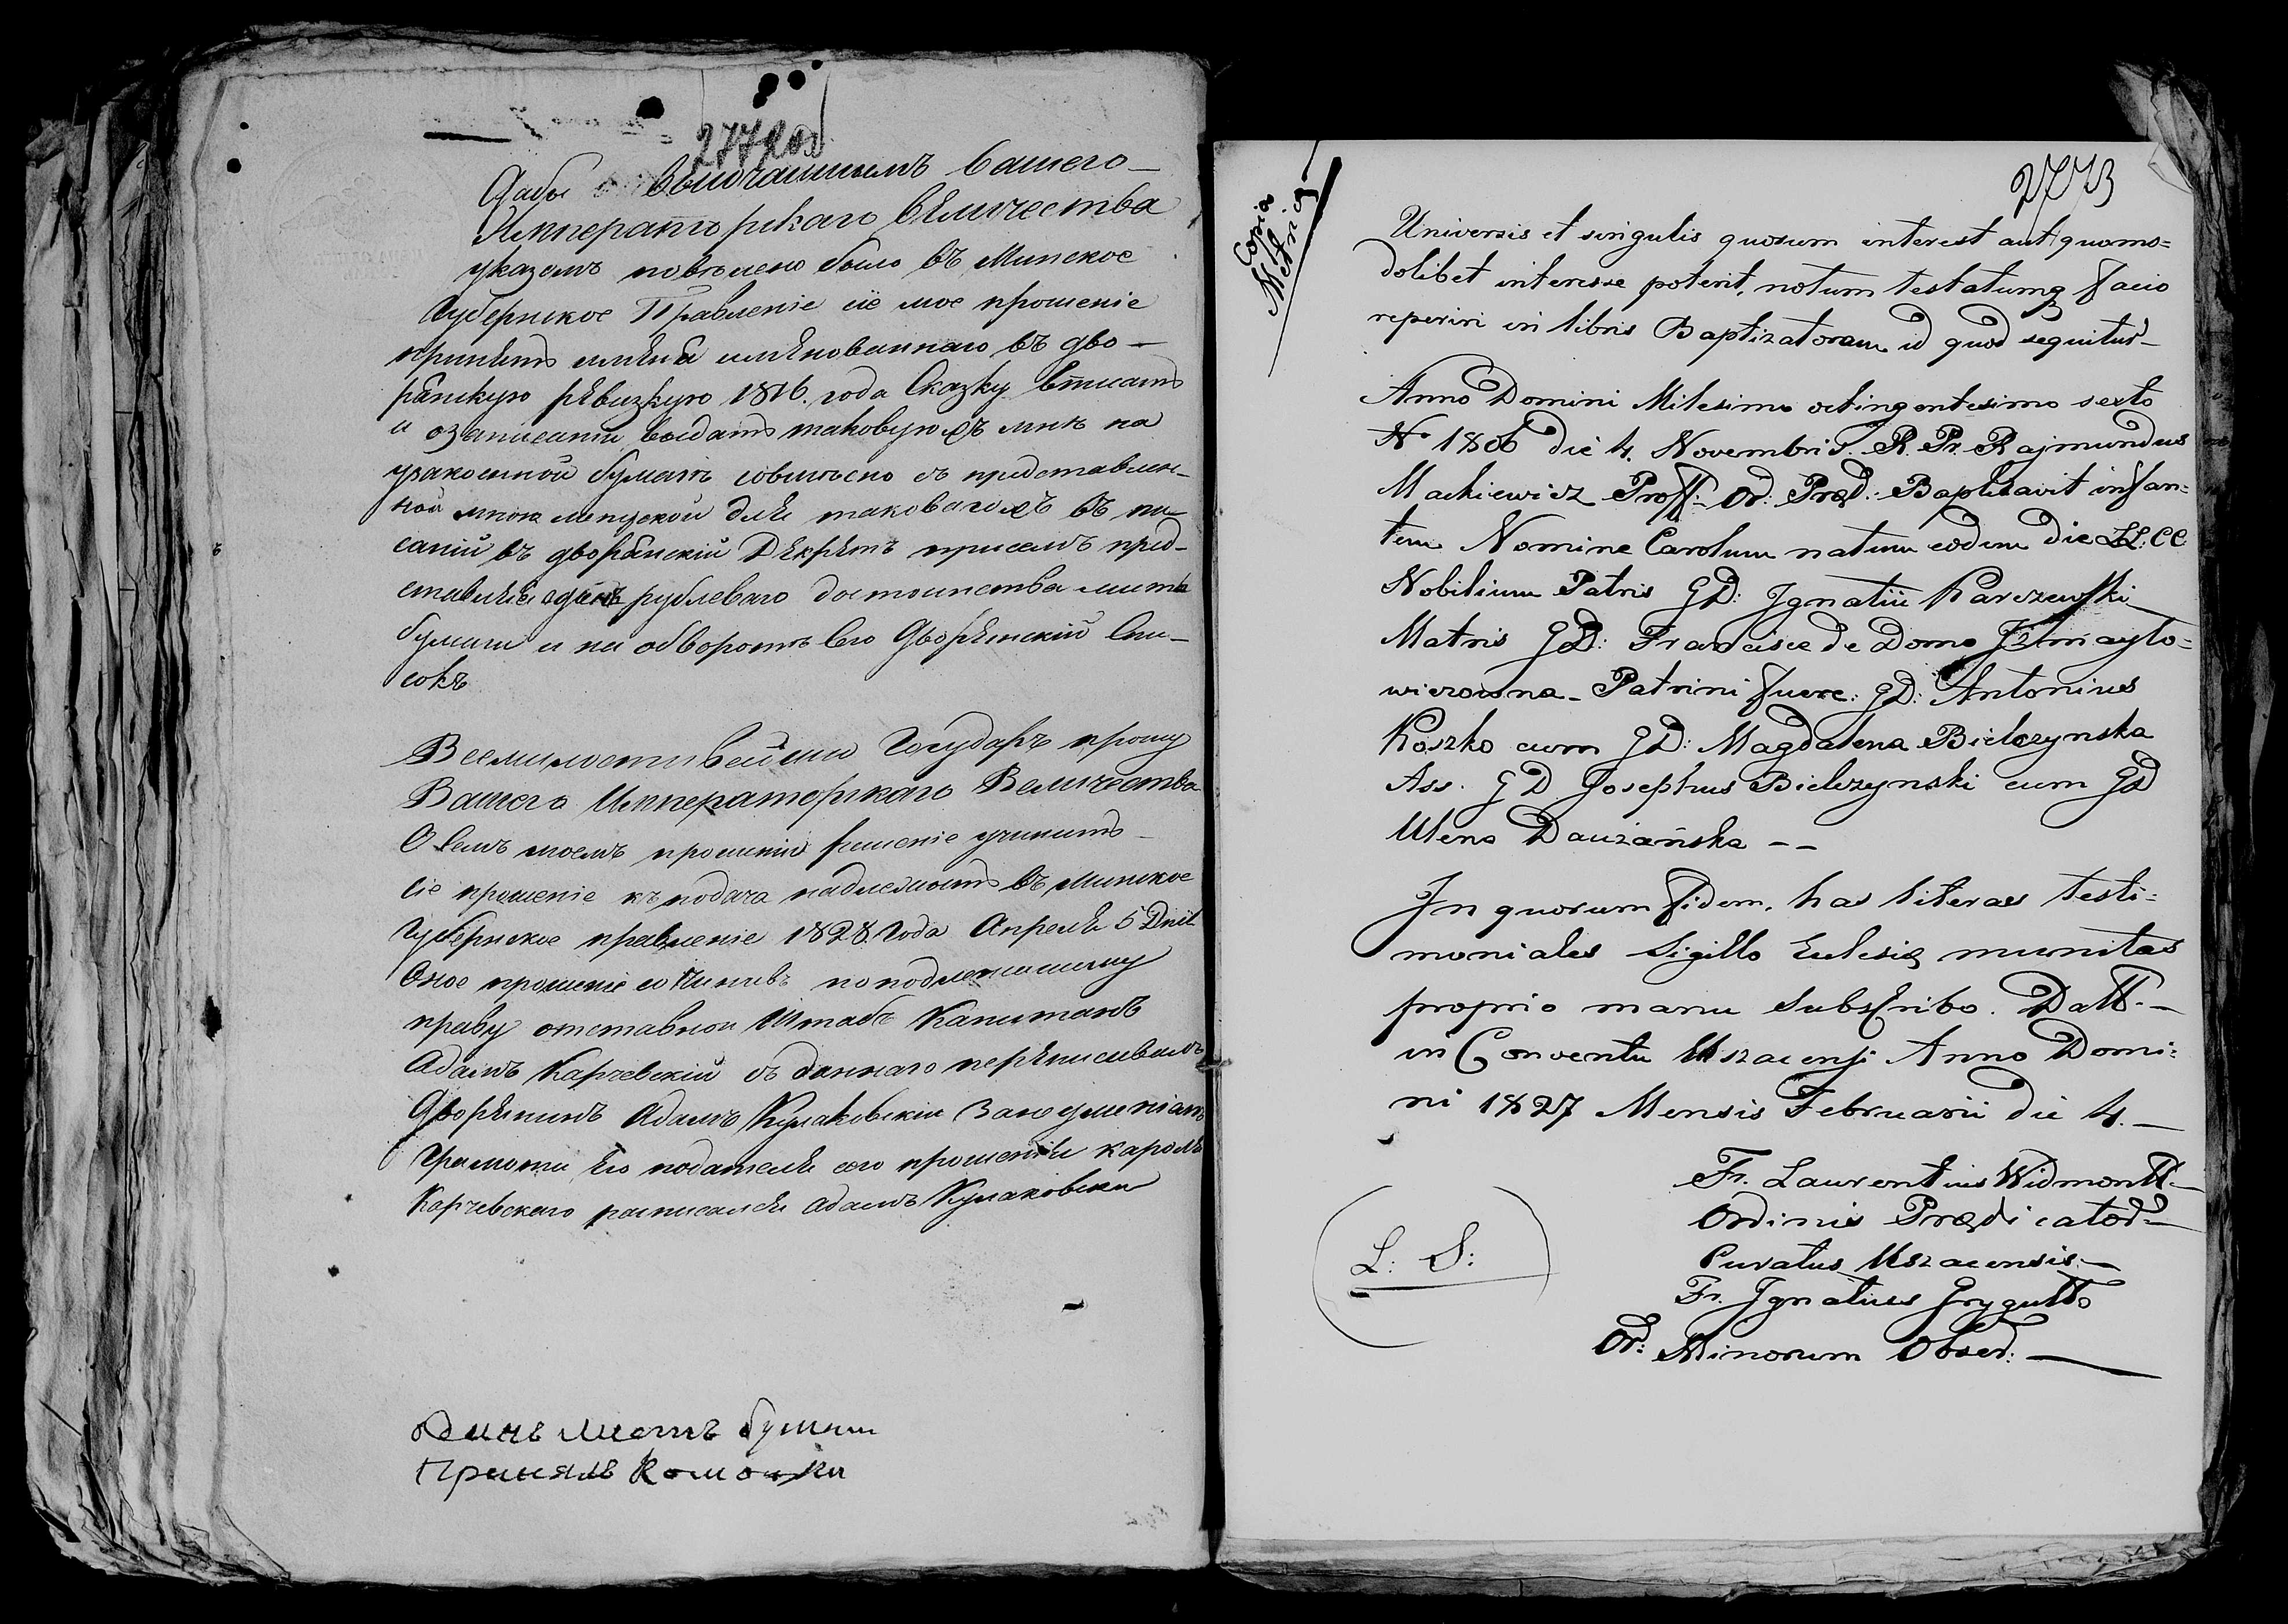 2772 об
Дабы Высочайшимъ Вашего
Императорскаго Величества
указомъ повелено было въ Минское
Губернское Правленіе сіе мое прошеніе
принять имянованнаго въ дво-
рянскую ревизкую 1816. года Сказку вписать
и о записании выдать таковую мнѣ на
узаконенной бумагѣ представлен-
ной мною
саній въ дворянскій присемъ пред-
ставляя одинъ рублеваго достоинства листъ
бумаги и на оборотѣ Дворянскій Спи-
сокъ
Всемилостивейшии Государь прошу
Вашего Императорскаго Величества
О семъ моемъ прошеніи решеніе учинить
сіе прошеніе къ подача надлежитъ въ Минское
Губернское правленіе 1828. Года Апреля 5 Дня
Оное прошеніе сочинивъ
праву отставной Штабъ Капитанъ
Адамъ Карчевскій переписывалъ
Дворянинъ Адамъ Кулаковскіи
Грамоты его подателя сего прошенія Кароля
Карчевскаго росписался Адамъ Кулаковски
Одинъ Листъ бумаги
Принялъ
2773
Copia
Metrici
Universis et singulis quorum interest aut quomo=
dolibet interesse poterit, notum testatumq facio
reperiri in libris Baptizatorum id quod sequitur
Anno Domini Milesimo octingentesimo sexto
N. 1806 die 4. Novembris. R. Pr. Rajmundus
Mackiewicz Proff: Or: Præd: Baptizavit infan=
tem Nomine Carolum natum eodem die LL: CC:
Nobilium Patris GD: Ignatii Karczewski
Matris GD: Francisce de Domo Izmayło=
wiczowna - Patrini fuere: GD: Antonius
Koszko cum GD: Magdalena Bielczynska
Ass. GD Josephus Bielczynski cum GD
Ulena Daużańska --
In quorum fidem, has literas testi=
moniales Sigillo Eclesiæ munitas
proprio manu Subscribo. Datt.-
in Conventu Uszacensi Anno Domi=
ni 1827 Mensis Februarii die 4.-
Fr. Laurentius Widmontt.-
Ordinis Prædicator-
Curatus Uszacensis.-
Fr. Ignatius Grygutto
Or: Minorum Obser:-
L: S: